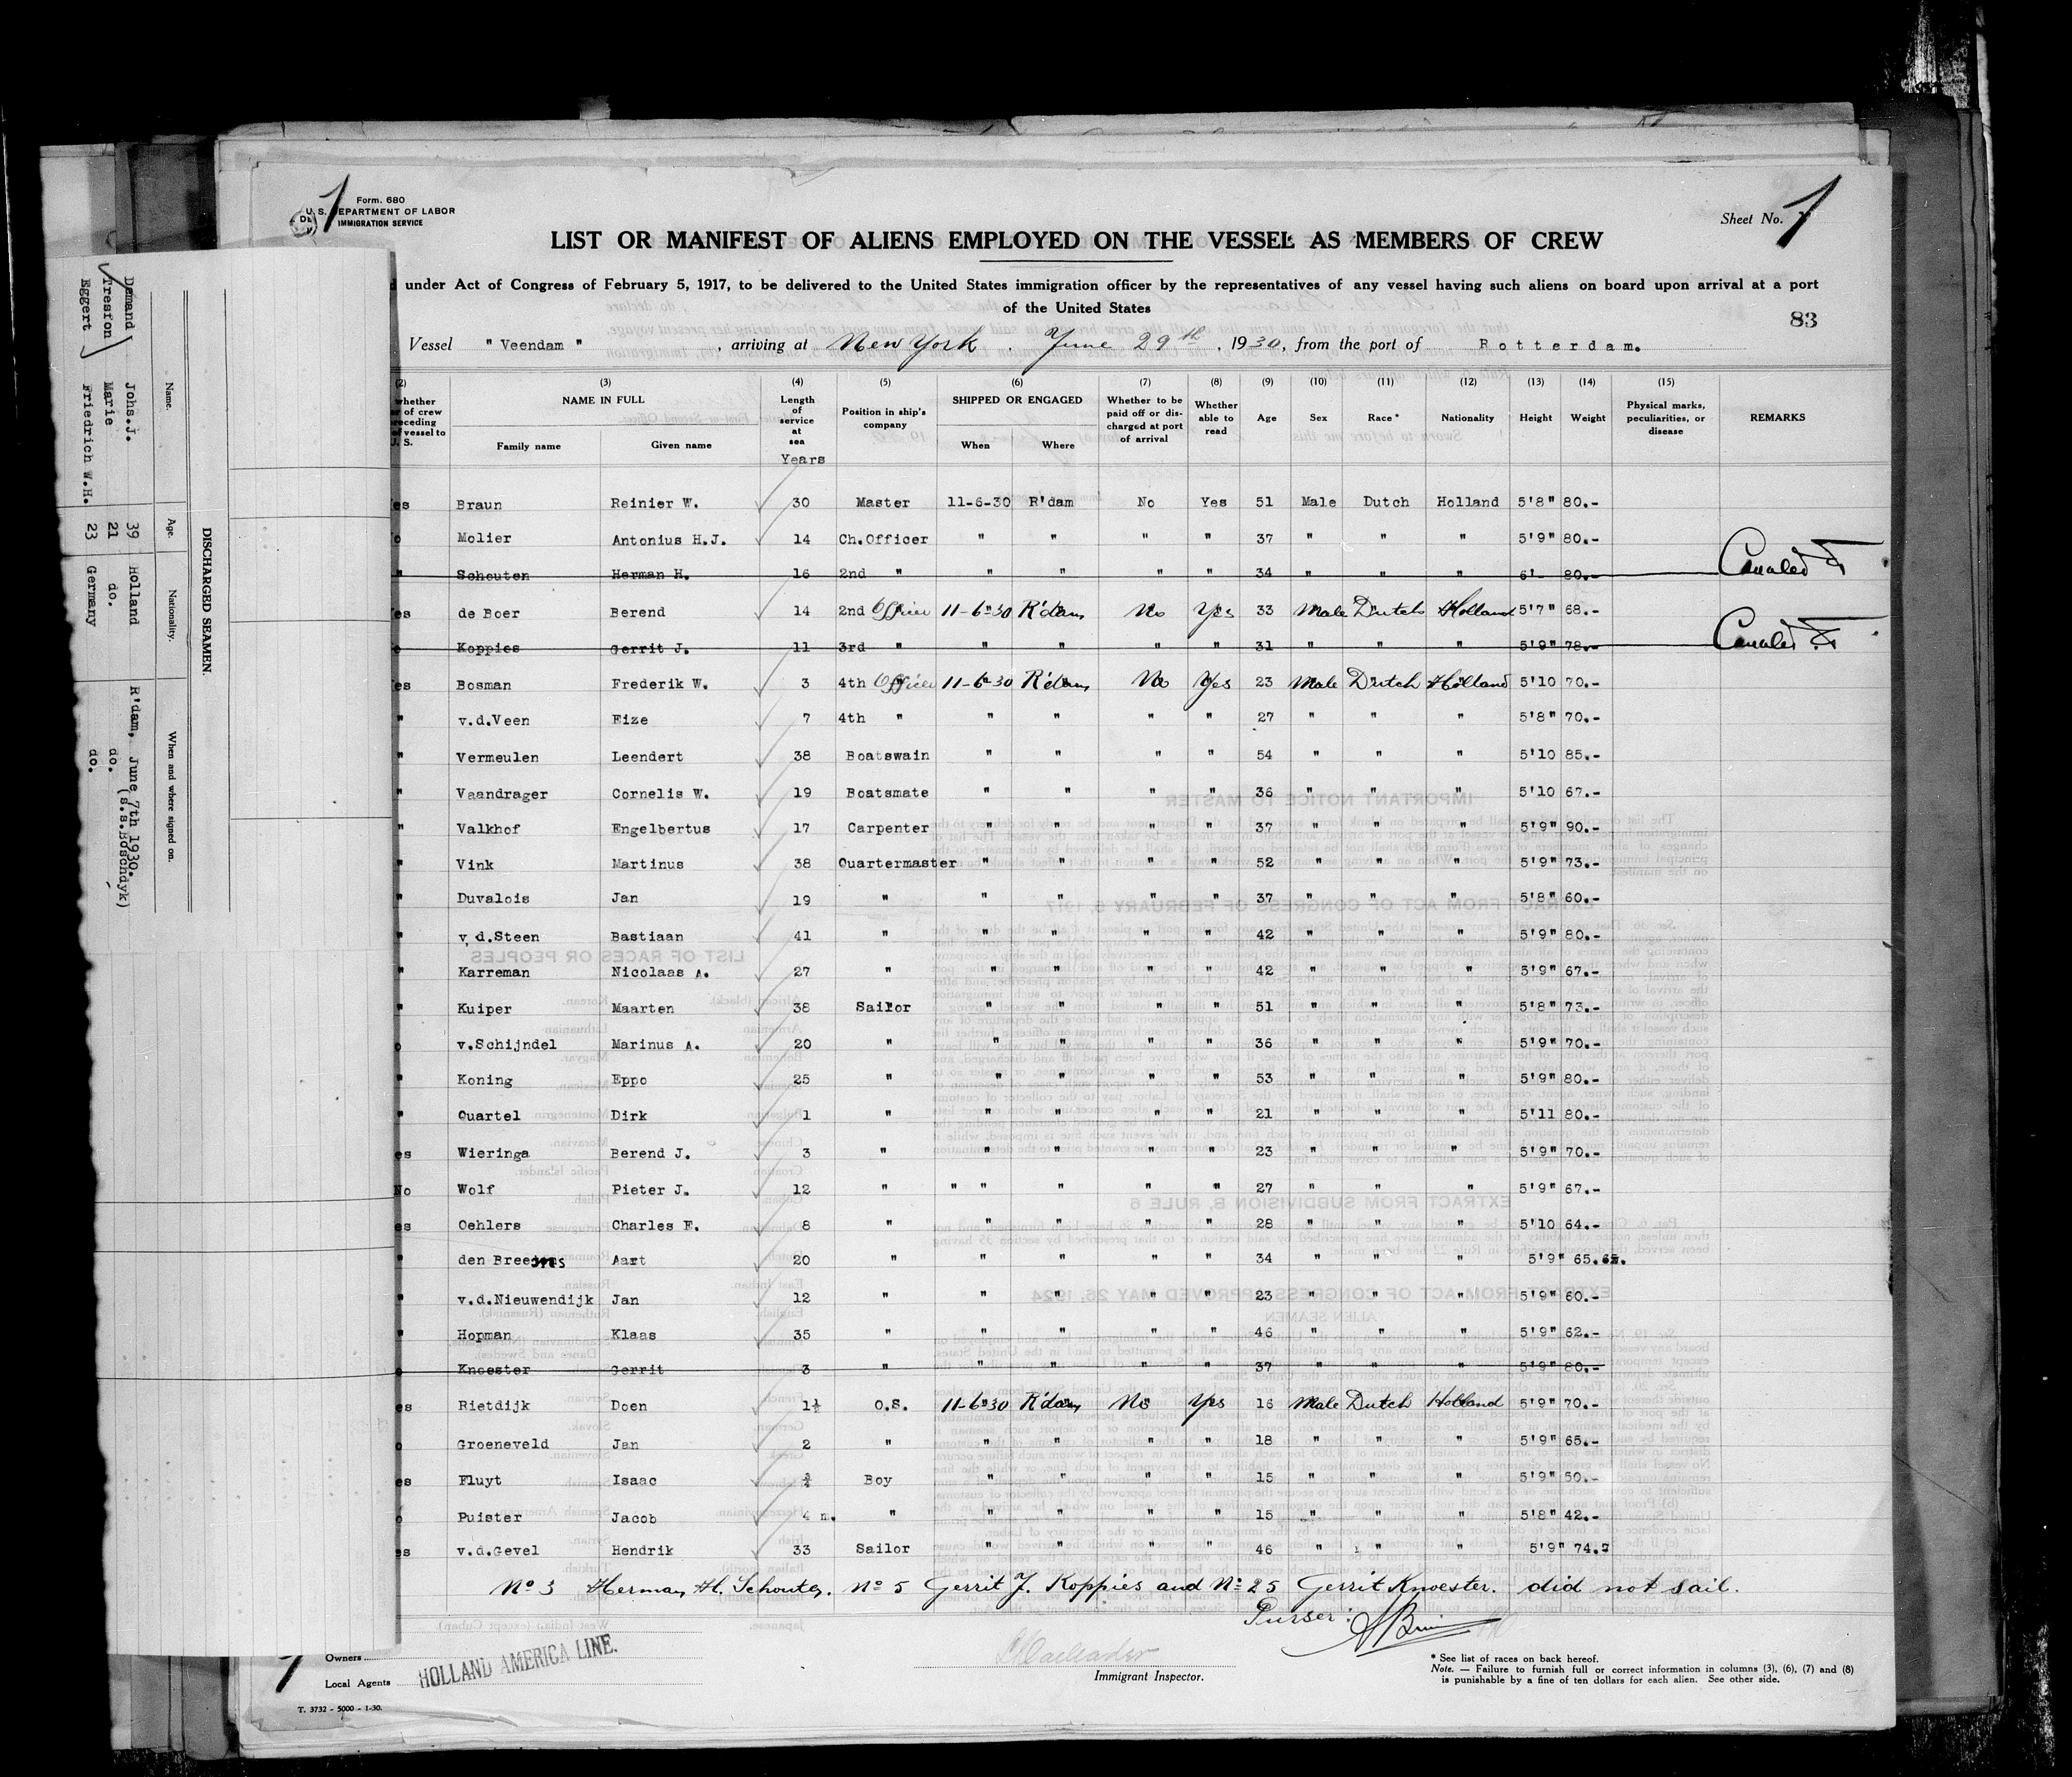 Form. 680
U. S. DEPARTMENT OF LABOR
IMMIGRATION SERVICE
Sheet No. 1
LIST OR MANIFEST OF ALIENS EMPLOYED ON THE VESSEL AS MEMBERS OF CREW
under Act of Congress of February 5, 1917, to be delivered to the United States immigration officer by the representatives of any vessel having such aliens on board upon arrival at a port
of the United States
83
Vessel " Veendam " , arriving at New York , June 29th , 1930, from the port of Rotterdam.
(2) (3) (4) (5) (6) (7) (8) (9) (10) (11) (12) (13) (14) (15)
whether of crew preceding vessel to U. S. NAME IN FULL Family name Given name Length of service at sea Years Position in ship's company SHIPPED OR ENGAGED When Where Whether to be paid off or discharged at port of arrival Whether able to read Age Sex Race * Nationality Height Weight Physical marks, peculiarities, or disease REMARKS
es Braun Reinier W. 30 Master 11-6-30 R'dam No Yes 51 Male Dutch Holland 5'8" 80.-
o Molier Antonius H.J. 14 Ch.Officer " " " " 37 " " " 5'9" 80.-
" Schouten Herman H. 16 2nd " " " " " 34 " " " 6'- 80.- Canceled
es de Boer Berend 14 2nd Officer 11-6-30 R'dam No Yes 33 Male Dutch Holland 5'7" 68.-
o Koppies Gerrit J. 11 3rd " " " " " 31 " " " 5'9" 78.- Canceled
es Bosman Frederik W. 3 4th Officer 11-6-30 R'dam No Yes 23 Male Dutch Holland 5'10 70.-
" v.d.Veen Eize 7 4th " " " " " 27 " " " 5'8" 70.-
" Vermeulen Leendert 38 Boatswain " " " " 54 " " " 5'10 85.-
" Vaandrager Cornelis W. 19 Boatsmate " " " " 36 " " " 5'10 67.-
" Valkhof Engelbertus 17 Carpenter " " " " 37 " " " 5'9" 90.-
" Vink Martinus 38 Quartermaster " " " " 52 " " " 5'9" 73.-
" Duvalois Jan 19 " " " " " 37 " " " 5'8" 60.-
" v.d.Steen Bastiaan 41 " " " " " 42 " " " 5'9" 80.-
" Karreman Nicolaas A. 27 " " " " " 42 " " " 5'9" 67.-
" Kuiper Maarten 38 Sailor " " " " 51 " " " 5'8" 73.-
o v.Schijndel Marinus A. 20 " " " " " 36 " " " 5'9" 70.-
" Koning Eppo 25 " " " " " 53 " " " 5'9" 80.-
" Quartel Dirk 1 " " " " " 21 " " " 5'11 80.-
es Wieringa Berend J. 3 " " " " " 23 " " " 5'9" 70.-
No Wolf Pieter J. 12 " " " " " " 27 " " " 5'9" 67.-
es Oehlers Charles F. 8 " " " " " 28 " " " 5'10 64.-
" den Breejens Aart 20 " " " " " 34 " " " 5'9" 65.
" v.d.Nieuwendijk Jan 12 " " " " " 23 " " " 5'9" 60.-
" Hopman Klaas 35 " " " " " 46 " " " 5'9" 62.-
o Knoester Gerrit 3 " " " " " 37 " " " 5'9" 80.-
es Rietdijk Doen 1½ O.S. 11-6-30 R'dam No Yes 16 Male Dutch Holland 5'9" 70.-
o Groeneveld Jan 2 " " " " " 18 " " " 5'9" 65.-
es Fluyt Isaac Boy " " " " 15 " " " 5'9" 50.-
o Puister Jacob 4 m. " " " " " 15 " " " 5'8" 42.-
es v.d.Gevel Hendrik 33 Sailor " " " " 46 " " " 5'9" 74.-
No 3 Herman H. Schouten. No 5 Gerrit J. Koppies and No 25 Gerrit Knoester. did not sail.
Purser:
Owners
Local Agents HOLLAND AMERICA LINE.
Immigrant Inspector.
* See list of races on back hereof.
Note. — Failure to furnish full or correct information in columns (3), (6), (7) and (8)
is punishable by a fine of ten dollars for each alien. See other side.
T. 3732 - 5000 - 1-30.
DISCHARGED SEAMEN.
Name. Age. Nationality. When and where signed on.
Demand Johs.J. 39 Holland R'dam, June 7th 1930.
(s.s.Boschdyk)
Tresfon Marie 21 do. do.
Eggert Friedrich W.H. 23 Germany do.